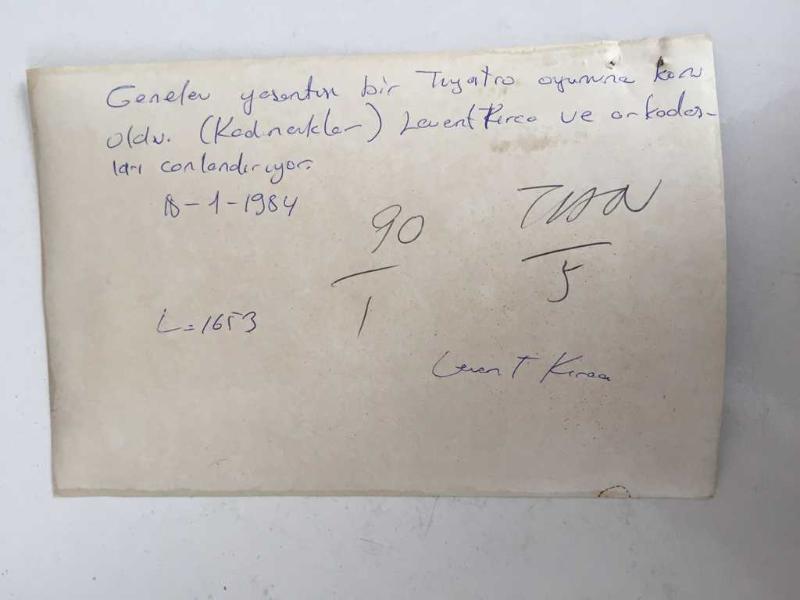 Genelev yasantısı bir Tiyatro oyununa konu
oldu. (Kadıncıklar) Levent Kırca ve arkadas-
ları canlandırıyor.
18-1-1984
90
1
5
L=1653
Levent Kırca